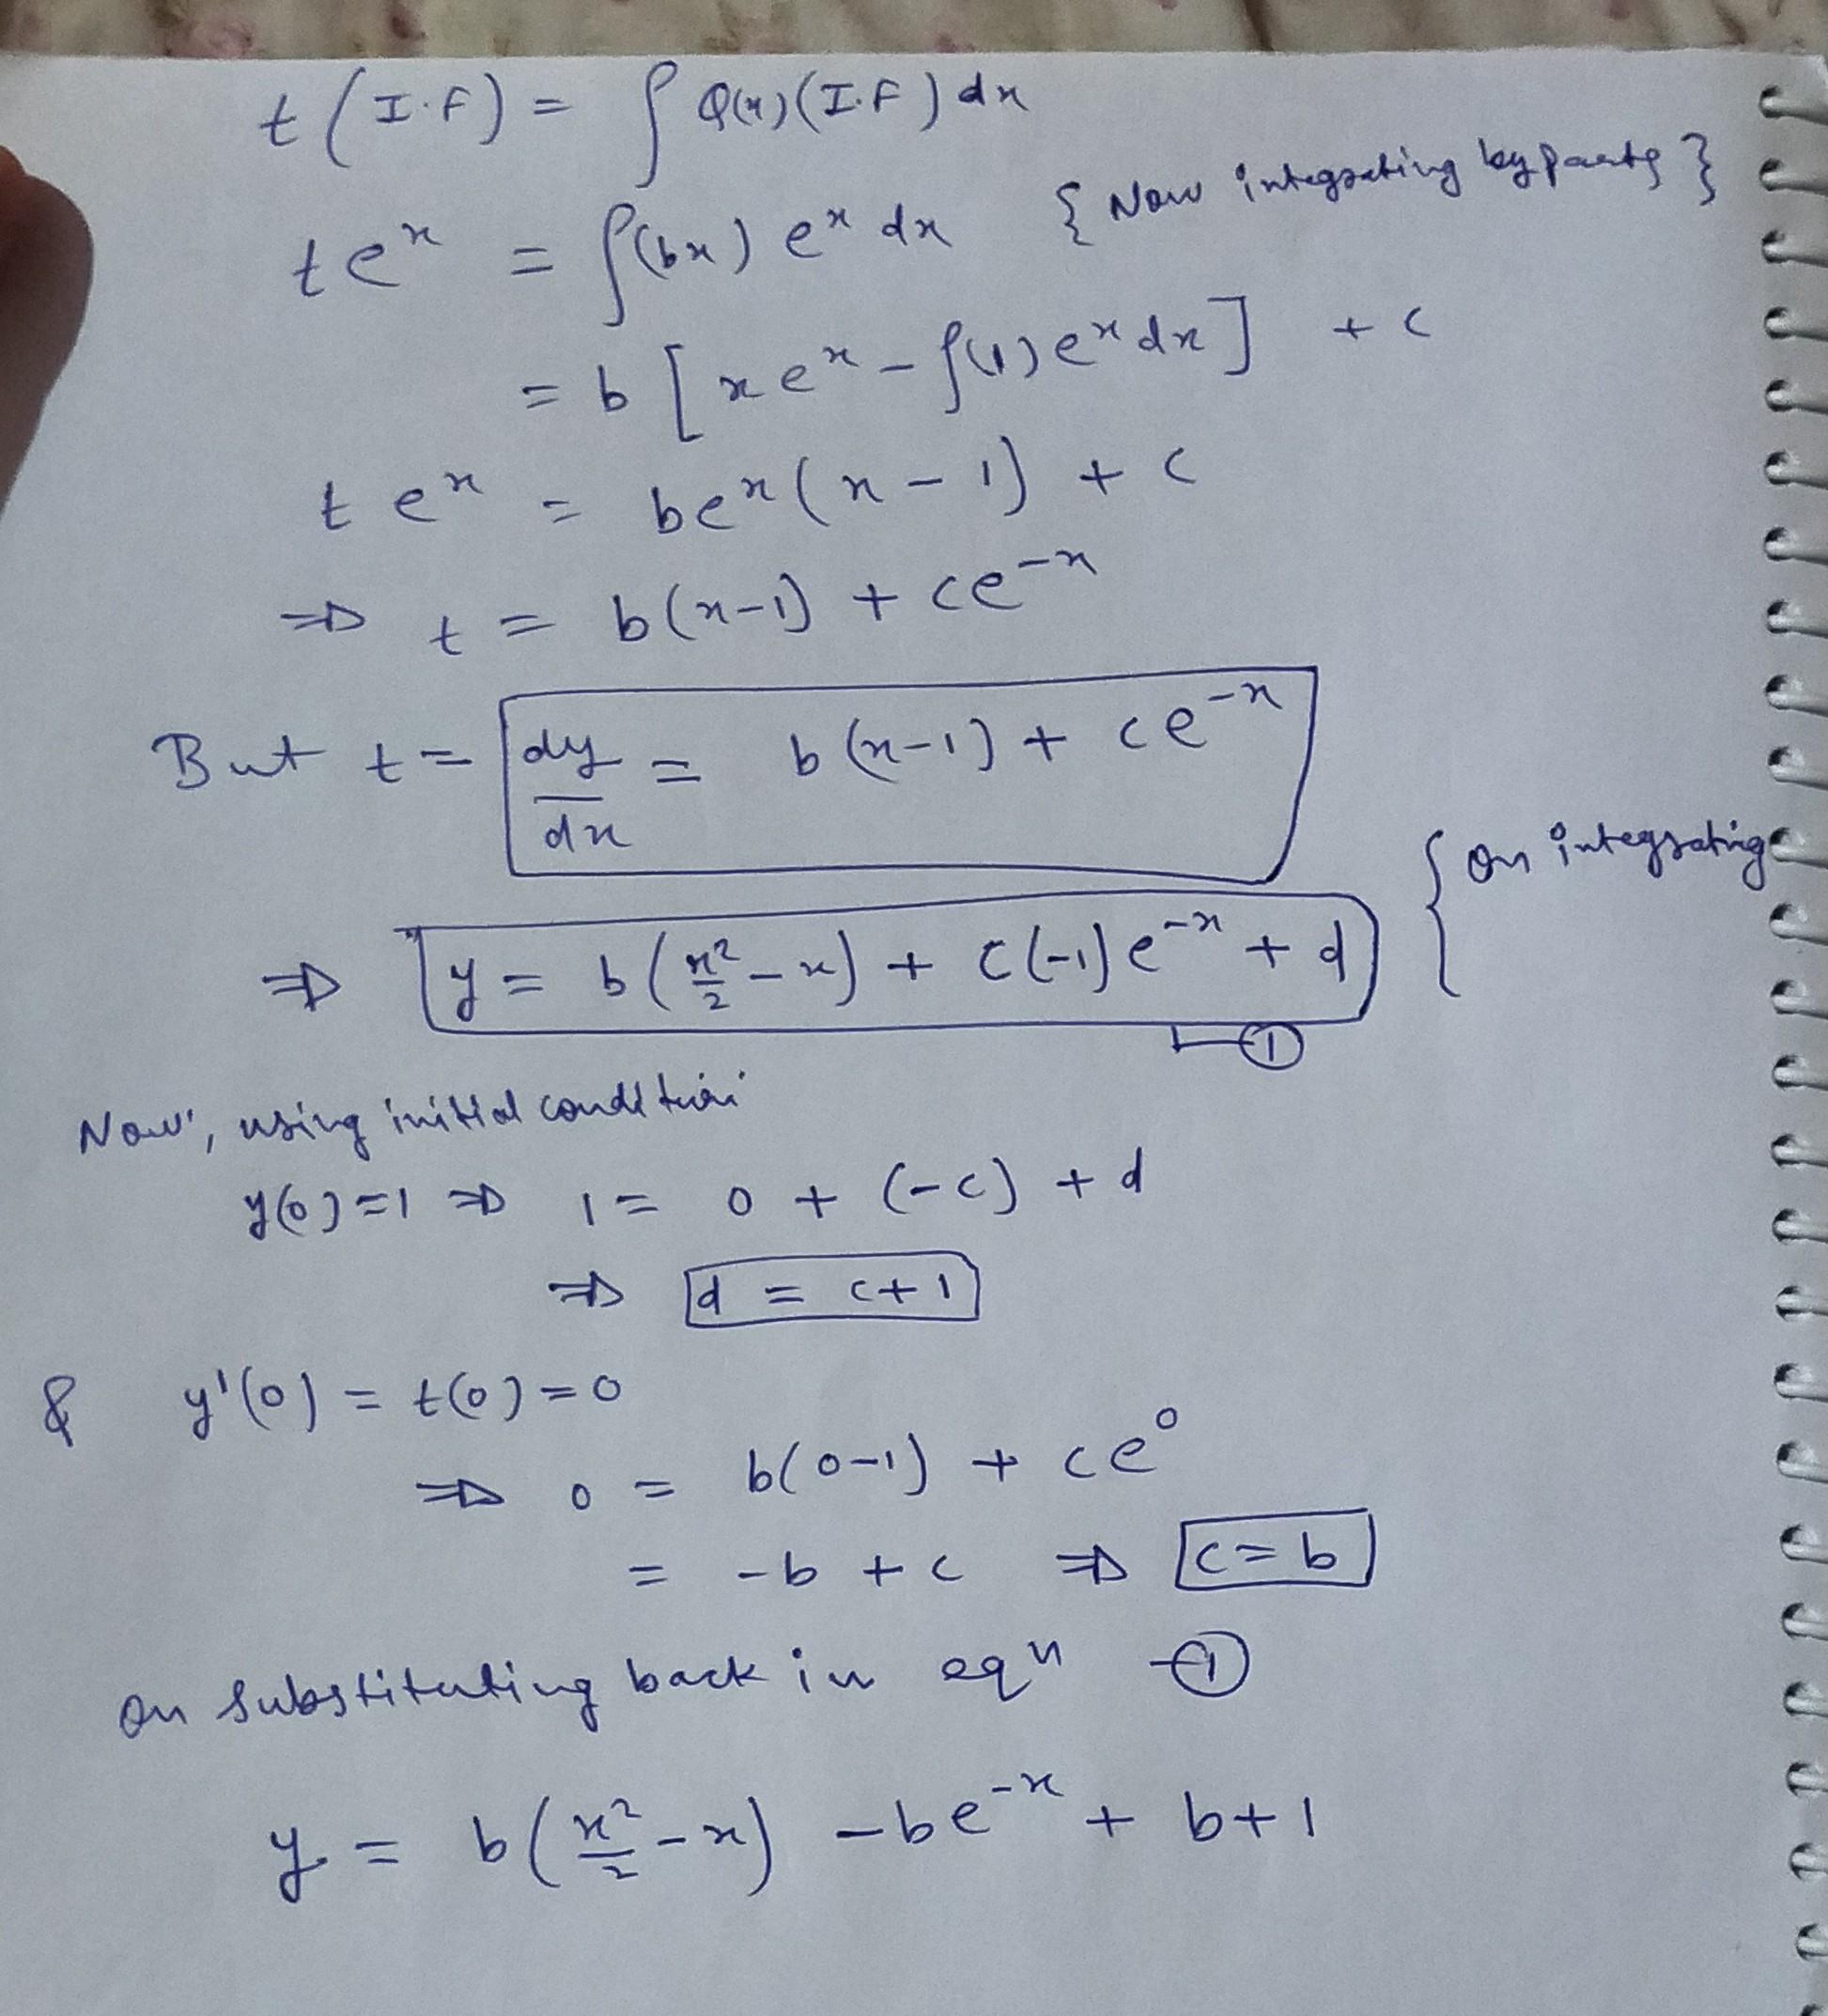 t(I.F) = ∫ Q(x)(I.F) dx
te^x = ∫(bx) e^x dx { Now integrating by parts }
= b [ x e^x - ∫(1) e^x dx ] + c
t e^x = be^x (x - 1) + c
⇒ t = b(x-1) + ce^-x
But t = dy/dx = b(x-1) + ce^-x
⇒ y = b(x²/2 - x) + c(-1)e^-x + d { On integrating
①
Now, using initial condition
y(0)=1 ⇒ 1 = 0 + (-c) + d
⇒ d = c+1
& y'(0) = t(0) = 0
⇒ 0 = b(0-1) + ce^0
= -b + c ⇒ c = b
On substituting back in eqn ①
y = b(x²/2 - x) - be^-x + b+1